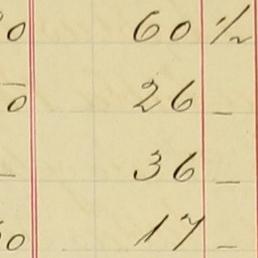 0 60 ½
0 26 _
_ 36 _
50 17 _